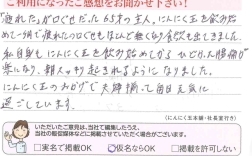 ご利用になったご感想をお聞かせ下さい!
「疲れた」が口ぐせだった65才の主人。にんにく玉を飲み始
めて一ヶ月で疲れたの口ぐせもほとんど無くなり食欲も出てきました。
私自身もにんにく玉を飲み始めてから ひどい
楽になり、朝スッキリ起きれるようになりました。
にんにく玉のおかげで夫婦揃って毎日元気に
過ごしています。
(にんにく玉本舗・社長室行き)
いただいたご意見は、当社で編集したうえ、
当社の販促媒体などに掲載させていただく場合がございます。
□実名で掲載OK ☑仮名ならOK □掲載を許可しない